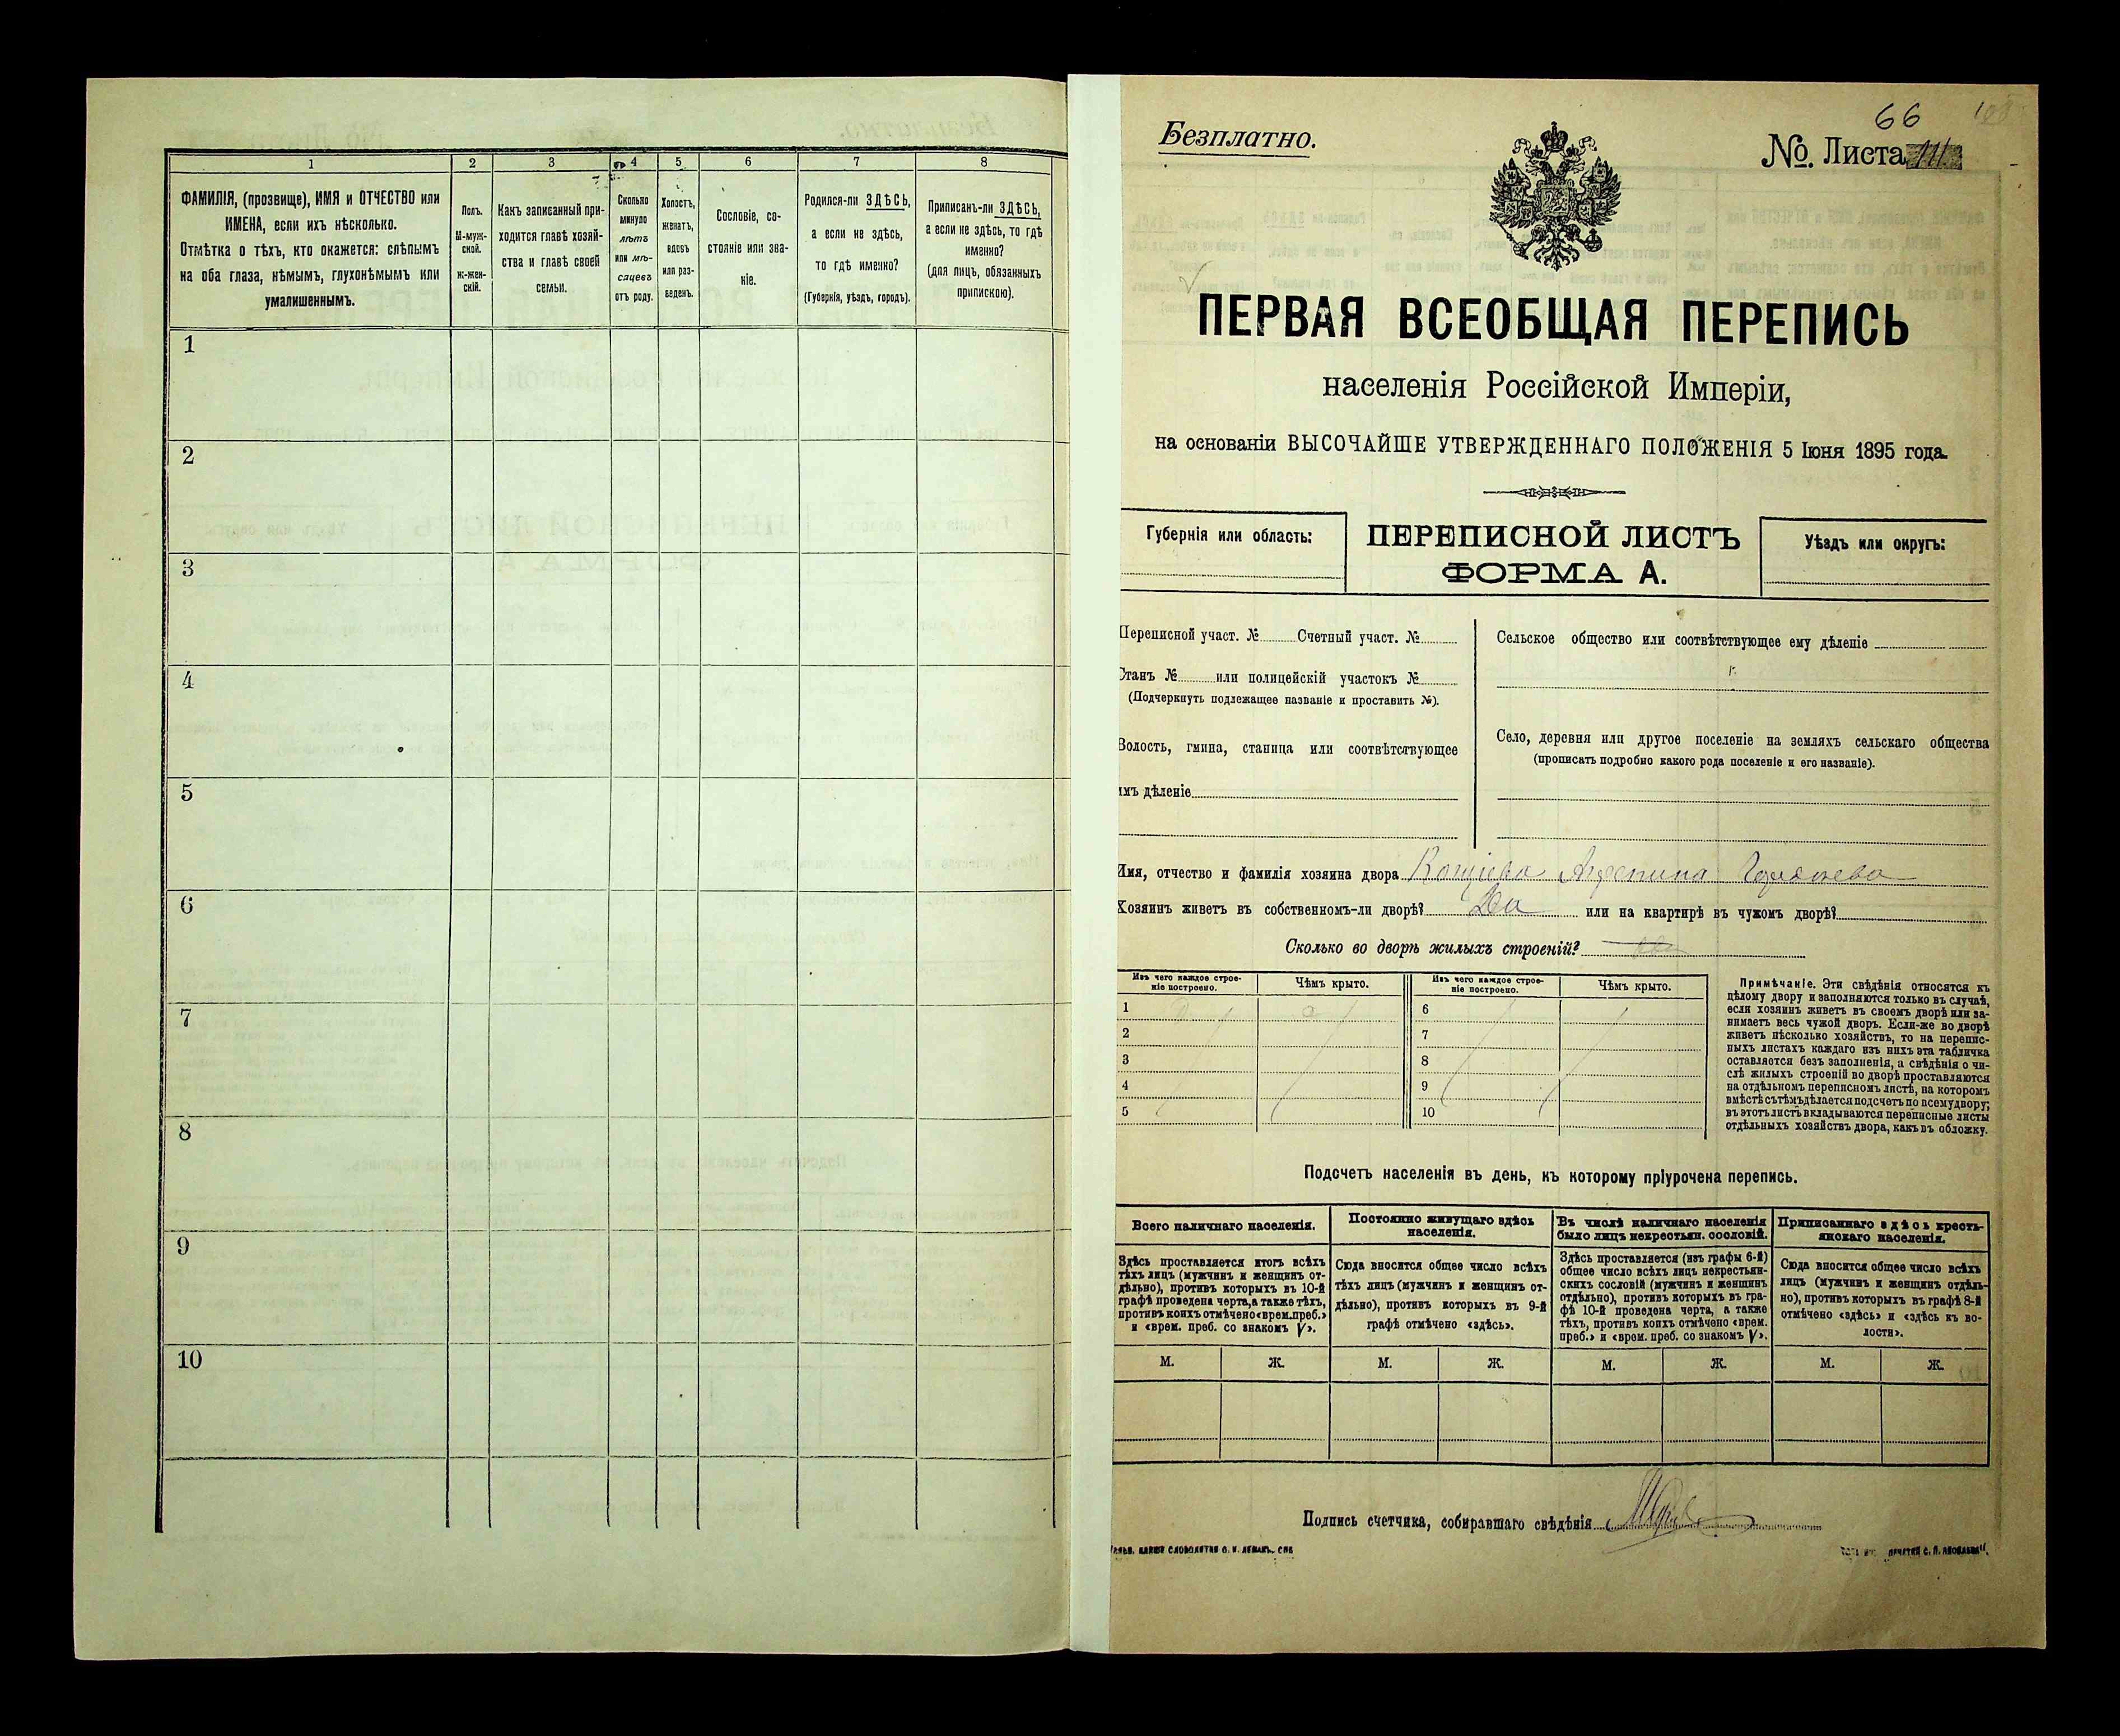 1 2 3 4 5 6 7 8
ФАМИЛІЯ, (прозвище), ИМЯ и ОТЧЕСТВО или
ИМЕНА, если ихъ нѣсколько.
Отмѣтка о тѣхъ, кто окажется: слѣпымъ
на оба глаза, нѣмымъ, глухонѣмымъ или
умалишеннымъ.
Полъ.
М-муж-
ской.
Ж-жен-
скій.
Какъ записанный при-
ходится главѣ хозяй-
ства и главѣ своей
семьи.
Сколько
минуло
лѣтъ
или мѣ-
сяцевъ
отъ роду.
Холостъ,
женатъ,
вдовъ
или раз-
веденъ.
Сословіе, со-
стояніе или зва-
ніе.
Родился-ли ЗДѢСЬ,
а если не здѣсь,
то гдѣ именно?
(Губернія, уѣздъ, городъ).
Приписанъ-ли ЗДѢСЬ,
а если не здѣсь, то гдѣ
именно?
(для лицъ, обязанныхъ
припискою).
1
2
3
4
5
6
7
8
9
10
66
Безплатно.
№. Листа
ПЕРВАЯ ВСЕОБЩАЯ ПЕРЕПИСЬ
населенія Россійской Имперіи,
на основаніи ВЫСОЧАЙШЕ УТВЕРЖДЕННАГО ПОЛОЖЕНІЯ 5 Іюня 1895 года.
Губернія или область:
ПЕРЕПИСНОЙ ЛИСТЪ
ФОРМА А.
Уѣздъ или округъ:
Переписной участ. № Счетный участ. №
Станъ № или полицейскій участокъ №
(Подчеркнуть подлежащее названіе и проставить №).
Волость, гмина, станица или соотвѣтствующее
имъ дѣленіе
Сельское общество или соотвѣтствующее ему дѣленіе
Село, деревня или другое поселеніе на земляхъ сельскаго общества
(прописать подробно какого рода поселеніе и его названіе).
Имя, отчество и фамилія хозяина двора
Хозяинъ живетъ въ собственномъ-ли дворѣ? Да или на квартирѣ въ чужомъ дворѣ?
Сколько во дворѣ жилыхъ строеній?
Изъ чего каждое строе-
ніе построено.
Чѣмъ крыто.
Изъ чего каждое строе-
ніе построено.
Чѣмъ крыто.
1 6
2 7
3 8
4 9
5 10
Примѣчаніе. Эти свѣдѣнія относятся къ
цѣлому двору и заполняются только въ случаѣ,
если хозяинъ живетъ въ своемъ дворѣ или за-
нимаетъ весь чужой дворъ. Если-же во дворѣ
живетъ нѣсколько хозяйствъ, то на перепис-
ныхъ листахъ каждаго изъ нихъ эта табличка
оставляется безъ заполненія, а свѣдѣнія о чи-
слѣ жилыхъ строеній во дворѣ проставляются
на отдѣльномъ переписномъ листѣ, на которомъ
вмѣстѣ съ тѣмъ дѣлается подсчетъ по всему двору;
въ этотъ листъ вкладываются переписные листы
отдѣльныхъ хозяйствъ двора, какъ въ обложку.
Подсчетъ населенія въ день, къ которому пріурочена перепись.
Всего наличнаго населенія.
Постоянно живущаго здѣсь
населенія.
Въ числѣ наличнаго населенія
было лицъ некрестьян. сословій.
Приписаннаго здѣсь кресть-
янскаго населенія.
Здѣсь проставляется итогъ всѣхъ
тѣхъ лицъ (мужчинъ и женщинъ от-
дѣльно), противъ которыхъ въ 10-й
графѣ проведена черта, а также тѣхъ,
противъ коихъ отмѣчено «врем. преб.»
и «врем. преб. со знакомъ V».
Сюда вносится общее число всѣхъ
тѣхъ лицъ (мужчинъ и женщинъ от-
дѣльно), противъ которыхъ въ 9-й
графѣ отмѣчено «здѣсь».
Здѣсь проставляется (изъ графы 6-й)
общее число всѣхъ лицъ некрестьян-
скихъ сословій (мужчинъ и женщинъ
отдѣльно), противъ которыхъ въ гра-
фѣ 10-й проведена черта, а также
тѣхъ, противъ коихъ отмѣчено «врем.
преб.» и «врем. преб. со знакомъ V».
Сюда вносится общее число всѣхъ
лицъ (мужчинъ и женщинъ отдѣль-
но), противъ которыхъ въ графѣ 8-й
отмѣчено «здѣсь» и «здѣсь къ во-
лости».
М. Ж. М. Ж. М. Ж. М. Ж.
Подпись счетчика, собиравшаго свѣдѣнія